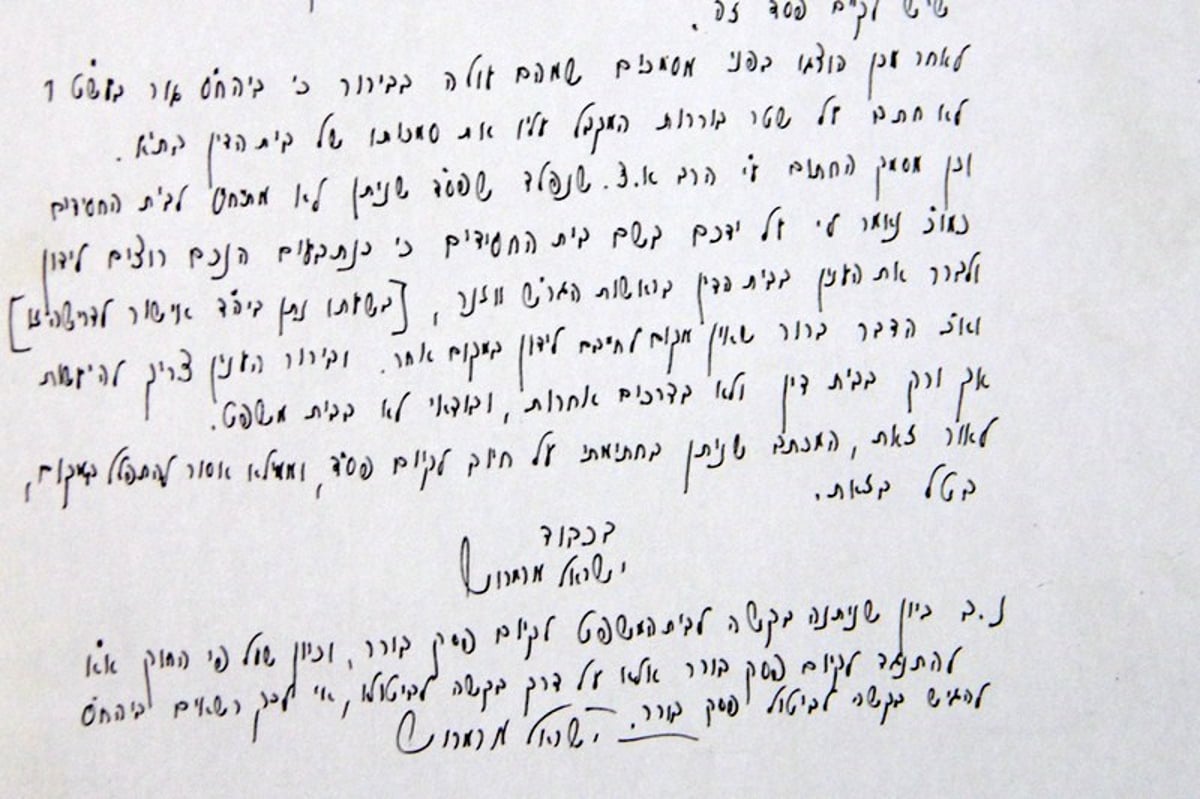 שיש לקיים פסד זה.
לאחר מכן הוצגו בפני מסמכים שמהם עולה בבירור כי ביהח"ס גור בעש"ט 1
לא חתם על שטר בוררות המקבל עליו את סמכותו של בית הדין בת"א.
וכן מסמך החתום ע"י הרב א.צ. שנפלד שפס"ד שניתן לא מתיחס לבית החסידים
כמו"כ נאמר לי על ידכם בשם בית החסידים כי כנתבעים הנכם רוצים לידון
ולברר את הענין בבית הדין בראשות הגר"ש ווזנר, [בשעתו נתן ביה"ד אישור לדרישה זו]
וא"כ הדבר ברור שאין מקום לחייבם לידון במקום אחר. ובירור הענין צריך להיעשות
אך ורק בבית דין ולא בדרכים אחרות, ובודאי לא בבית משפט.
לאור זאת, המכתב שניתן בחתימתי על חיוב לקיום פס"ד, וממילא אסור להתפלל במקום,
בטל בזאת.
בכבוד
ישראל מרמרוש
נ.ב כיון שניתנה בקשה לבית המשפט לקיום פסק בורר, וכיון שעל פי החוק א"א
להתנגד לקיום פסק בורר אלא על דרך בקשה לביטולו, אי לכך רשאים ביהח"ס
להגיש בקשה לביטול פסק בורר. ישראל מרמרוש